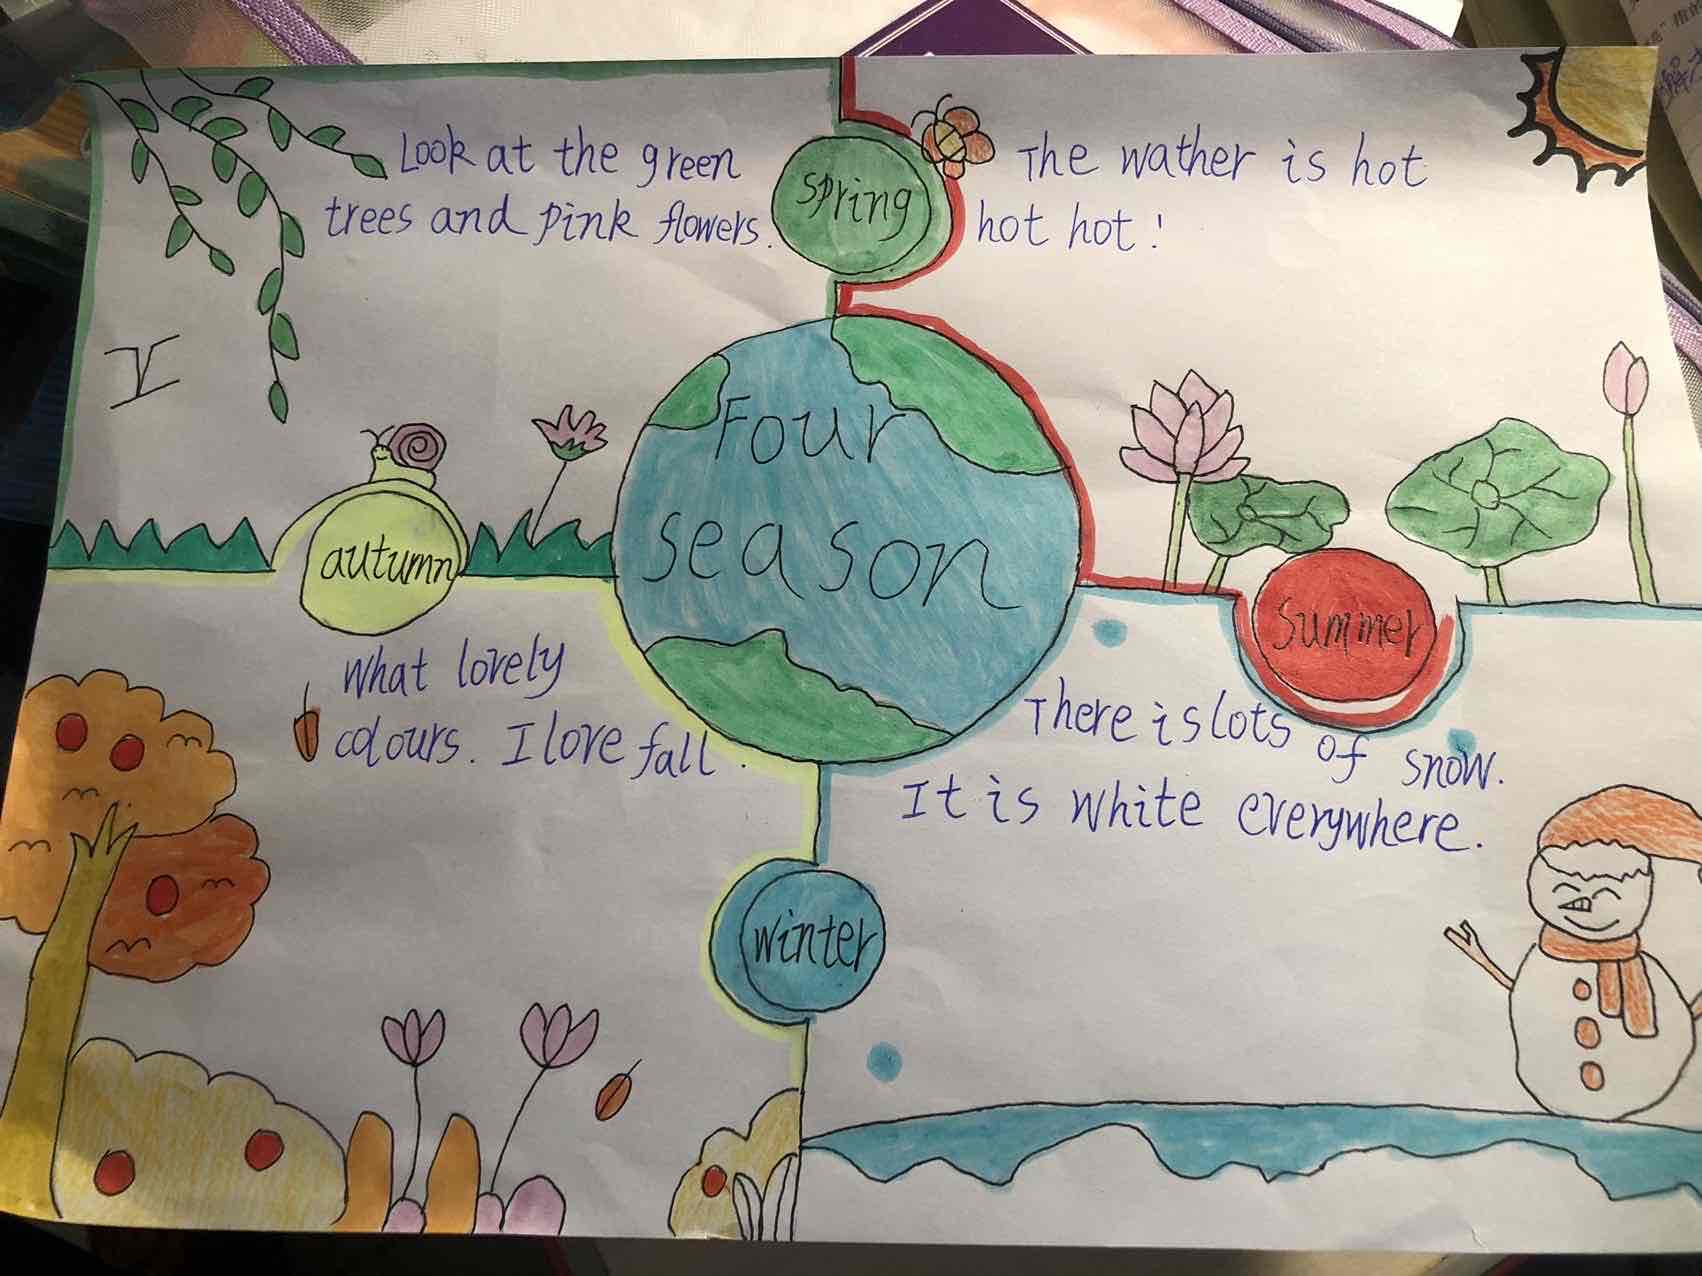 Look at the green
trees and pink flowers.
spring
The wather is hot
hot hot!
Four
season
autumn
Summer
What lovely
colours. I love fall.
There is lots of snow.
It is white everywhere.
winter